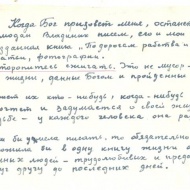 Когда Бог призовет меня, остане
людам Владиных писем, его и мои
зданная книга "По дорогам рабства и
фотография.
торопитесь сжигать. Это не мусор -
жизни, данные Богом и пройденны
их кто-нибудь, когда-нибудь
и задумается о своей жиз
- у каждого человека она ра
бы умели писать, то обязательно
бы в одну книгу жизни о
людей - трудолюбивых и пред
друг другу до последних дней.